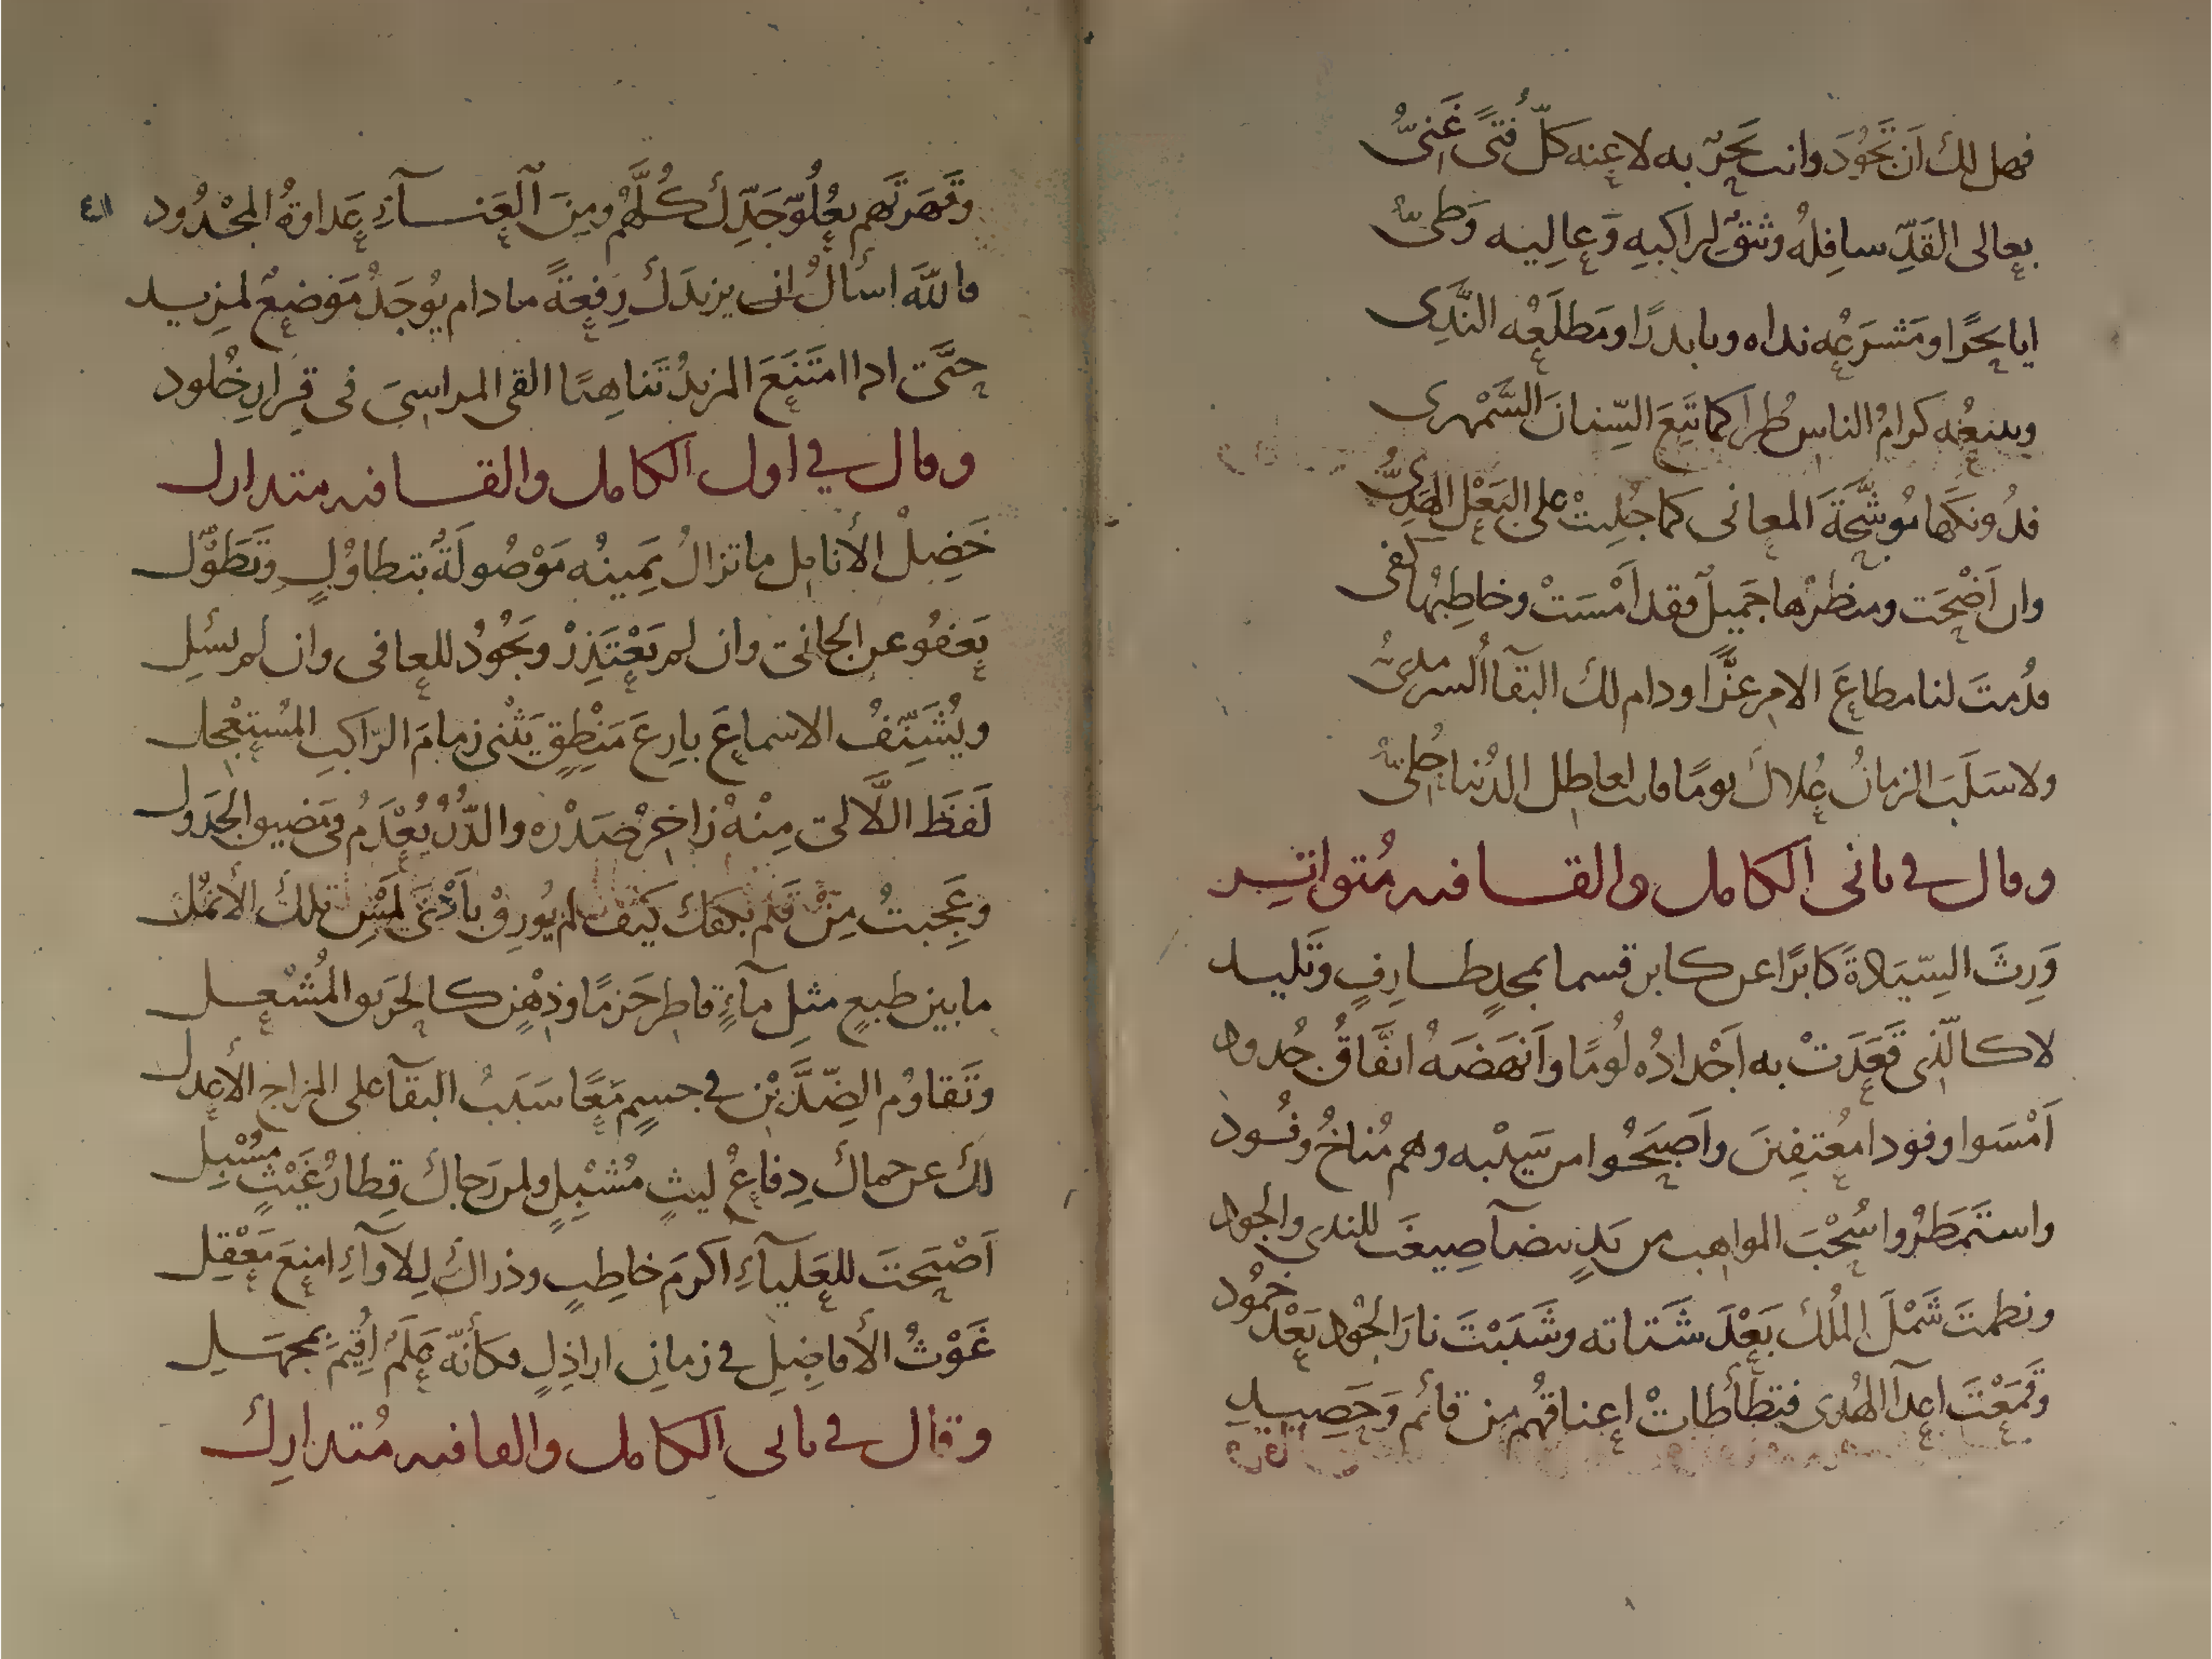 فهل لك اَن تَجُودَ وانت بَحرٌ به لاعنه كلّ فتًى غَنىُّ
بعالى القَدِّ سافِلهُ وثقٌ لراكبهِ وَعالِيه وَطىُّ
ايا بحرًا ومَشرَعُه نداه ويا بدرًا ومَطلَعُه النَّدِى
ويتبعُه كرامُ الناس طُرا كما تَبِعَ السِّنانَ السَّمْهرى
فدُونكَها مُوشَّحَةَ المعانى كما جُلِيتْ على البَعْل الهَدِىُّ
وان اَضْحَت ومنظرُها جَميلٌ فقد اَمْسَتْ وخاطِبُها كفى
فدُمتَ لنا مطاعَ الامر عزًّا ودام لك البَقآ السرمدىُّ
ولا سَلَبَ الزمانُ عُلاكَ يومًا فانت لعاطل الدُنيا حُلىُّ
وقال في ثانى الكامل والقافيه مُتواتِر
وَرِثَ السِّيَادةَ كابرًا عن كابر قسما بمجدٍ طارفٍ وتَليد
لا كالّذى قَعَدَتْ به اَجْدادُه لُومًا واَنهَضَهُ اتّفَاقُ جُدود
اَمْسَوا وفودا معُتفِينَ واَصبَحُوا من سَيْبه وهم مُناخُ وفُود
واستَمطَرُوا سُحْبَ المواهب من يَدٍ بيضآ صِيغَت للندى والجود
ونظمتَ شَمْلَ المُلك بَعْدَ شَتاته وشَبَبْتَ نارَ الجُود بَعْدَ خمُود
وقَمَعْتَ اعدآ الهُدى فتطَأطأتْ اعناقهُم من قائم وَحَصيدِ
٤١
وقَهَرتَهم بعُلُوّ جَدِّكَ كُلَّهُم ومِنَ العَنآءِ عَداوةُ المجْدُود
فاللهَ اسألُ ان يزيدَكَ رِفعةً ما دام يُوجَدُ مَوضعٌ لمزيد
حتَّى اذا امتَنَعَ المزيدُ تَناهِيًا القى المراسِىَ فى قرارِ خُلود
وقال في اول الكامل والقافيه متدارك
خَضِلْ الأنامل ما تزالُ يَمِينُه مَوْصُولَةً بتطاوُلٍ وتَطَوُّل
يَعْفُو عن الجانى وان لم يَعْتَذِرْ ويَجُودُ للعافى وان لم يسئل
ويُشَنِّفُ الاسماعَ بارِعَ مَنْطِقٍ يَثْنى زمامَ الرّاكبِ المسُتعْجل
لَفَظَ اللّالى مِنْهُ زاخرُ صَدْرْه والدُّرُّ يُعْدَمُ فى مَضيق الجَدول
وعَجِبتُ مِنْ قَلم بكفك كَيف لم يُورِقْ بأَدْنَى لمَسِ تلكَ الأنمُل
ما بين طبعٍ مثلِ مآءٍ قاطر حَزمًا وذِهْنٍ كالحَريق المُشْعل
وتَقاوُم الضِّدَّيْن في جسمٍ مَعًا سَبَبُ البَقآ على المزاج الأعدل
لك عن حماك دِفاعُ ليثٍ مُشْبِلٍ ولمن رَجاكَ قِطارُ غَيْثٍ مُسْبِل
اَصْبَحتَ للعَليآءِ اكرَمَ خاطِبٍ وذراكَ لِلاوآءِ امنعَ مَعْقِلِ
غَوْثُ الأفاضِلِ في زمانِ اراذِلٍ فكأنّه عَلَمٌ اُقيمَ بمجهَلِ
وقال في ثانى الكامل والقافيه مُتدارِك